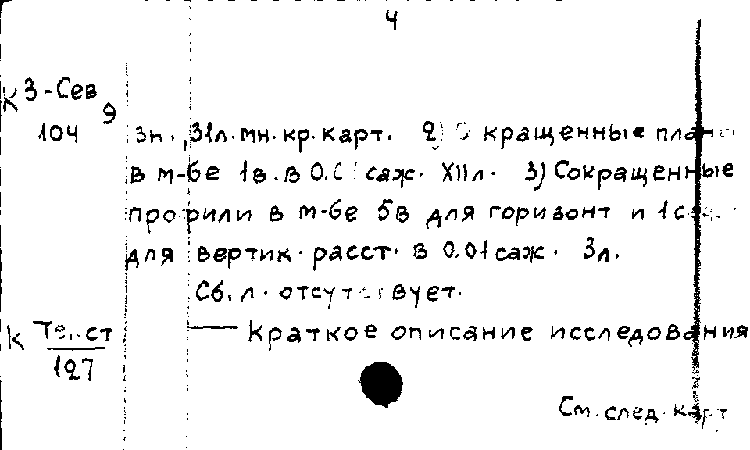 4
К 3-Сев 9
104
3н., 31л. мн. кр. карт. 2) Сокращенные планы
в м-бе 1в. в 0.01 саж. XII л. 3) Сокращенные
профили в м-бе 5в для горизонт и 1 саж.
для вертик. расст. в 0.01 саж. 3л.
Сб. л. отсутствует.
К Текст
127
— Краткое описание исследования
См. след. карт